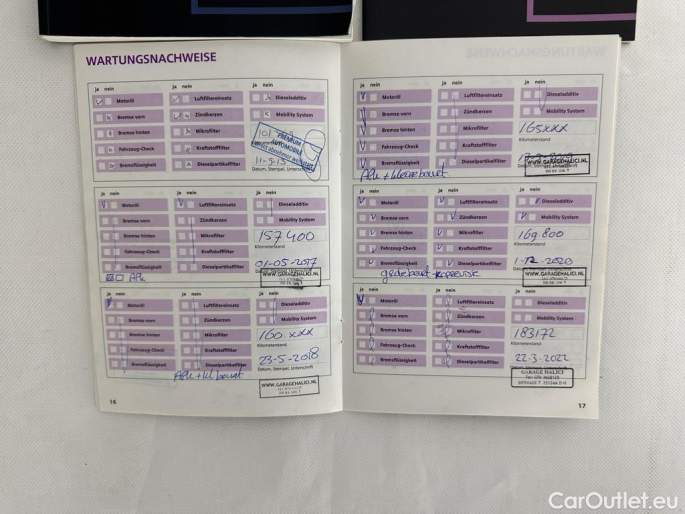 WARTUNGSNACHWEISE
ja nein
ja nein
ja nein
Motoröl
Luftfiltereinsatz
Dieseladditiv
Bremse vorn
Zündkerzen
Mobility System
Bremse hinten
Mikrofilter
Fahrzeug-Check
Kraftstofffilter
Bremsflüssigkeit
Dieselpartikelfilter
PREMIUM
AUTOMOBILE
Datum, Stempel, Unterschrift
ja nein
ja nein
ja nein
Motoröl
Luftfiltereinsatz
Dieseladditiv
Bremse vorn
Zündkerzen
Mobility System
Bremse hinten
Mikrofilter
157 400
Kilometerstand
Fahrzeug-Check
Kraftstofffilter
Bremsflüssigkeit
Dieselpartikelfilter
01-05-2017
APK
WWW.GARAGEHALICI.NL
ja nein
ja nein
ja nein
Motoröl
Luftfiltereinsatz
Dieseladditiv
Bremse vorn
Zündkerzen
Mobility System
Bremse hinten
Mikrofilter
160 xxx
Kilometerstand
Fahrzeug-Check
Kraftstofffilter
Bremsflüssigkeit
Dieselpartikelfilter
23-5-2018
Datum, Stempel, Unterschrift
APK + kl beurt
WWW.GARAGEHALICI.NL
16
ja nein
ja nein
ja nein
Motoröl
Luftfiltereinsatz
Dieseladditiv
Bremse vorn
Zündkerzen
Mobility System
Bremse hinten
Mikrofilter
165xxx
Kilometerstand
Fahrzeug-Check
Kraftstofffilter
Bremsflüssigkeit
Dieselpartikelfilter
WWW.GARAGEHALICI.NL
APK + kleine beurt
ja nein
ja nein
ja nein
Motoröl
Luftfiltereinsatz
Dieseladditiv
Bremse vorn
Zündkerzen
Mobility System
Bremse hinten
Mikrofilter
169 800
Kilometerstand
Fahrzeug-Check
Kraftstofffilter
Bremsflüssigkeit
Dieselpartikelfilter
1-12-2020
WWW.GARAGEHALICI.NL
ja nein
ja nein
ja nein
Motoröl
Luftfiltereinsatz
Dieseladditiv
Bremse vorn
Zündkerzen
Mobility System
Bremse hinten
Mikrofilter
183172
Kilometerstand
Fahrzeug-Check
Kraftstofffilter
Bremsflüssigkeit
Dieselpartikelfilter
22-3-2022
Datum, Stempel, Unterschrift
GARAGE HALICI
17
CarOutlet.eu